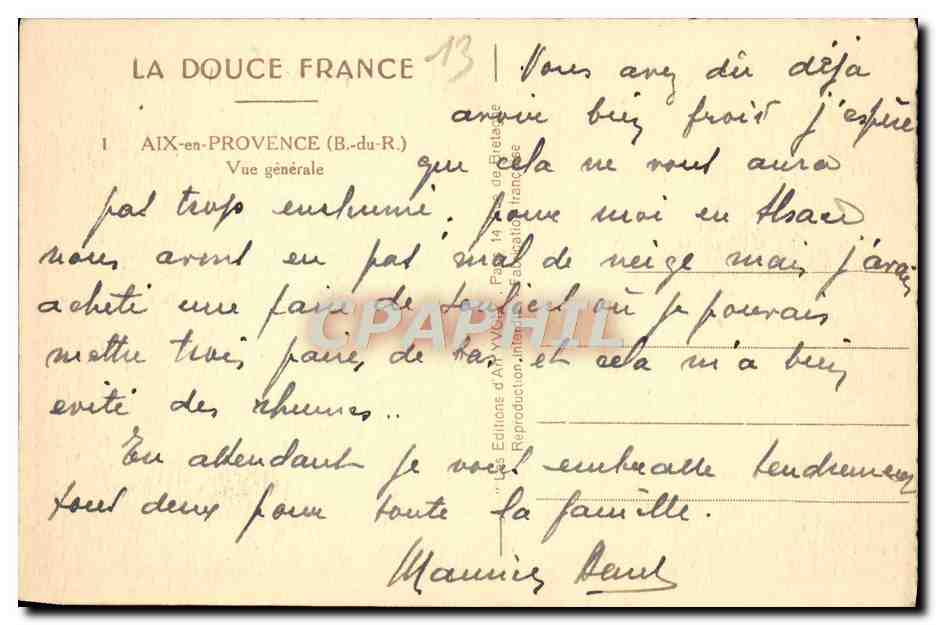 LA DOUCE FRANCE
13
1 AIX-en-PROVENCE (B.-du-R.)
Vue générale
Vous avez dû déjà
avoir bien froid j'espère
que cela ne vous aura
pas trop enrhumé. pour moi en Alsace
nous avons eu pas mal de neige mais j'avais
acheté une paire de souliers où je pouvais
mettre trois paires de bas et cela m'a bien
evité des rhumes..
En attendant je vous embrasse tendrement
tous deux pour toute la famille.
Maurice
"Les Editions d'Art YVON", Paris, 14 de Bretagne
Reproduction interdite Fabrication française
CPAPHIL